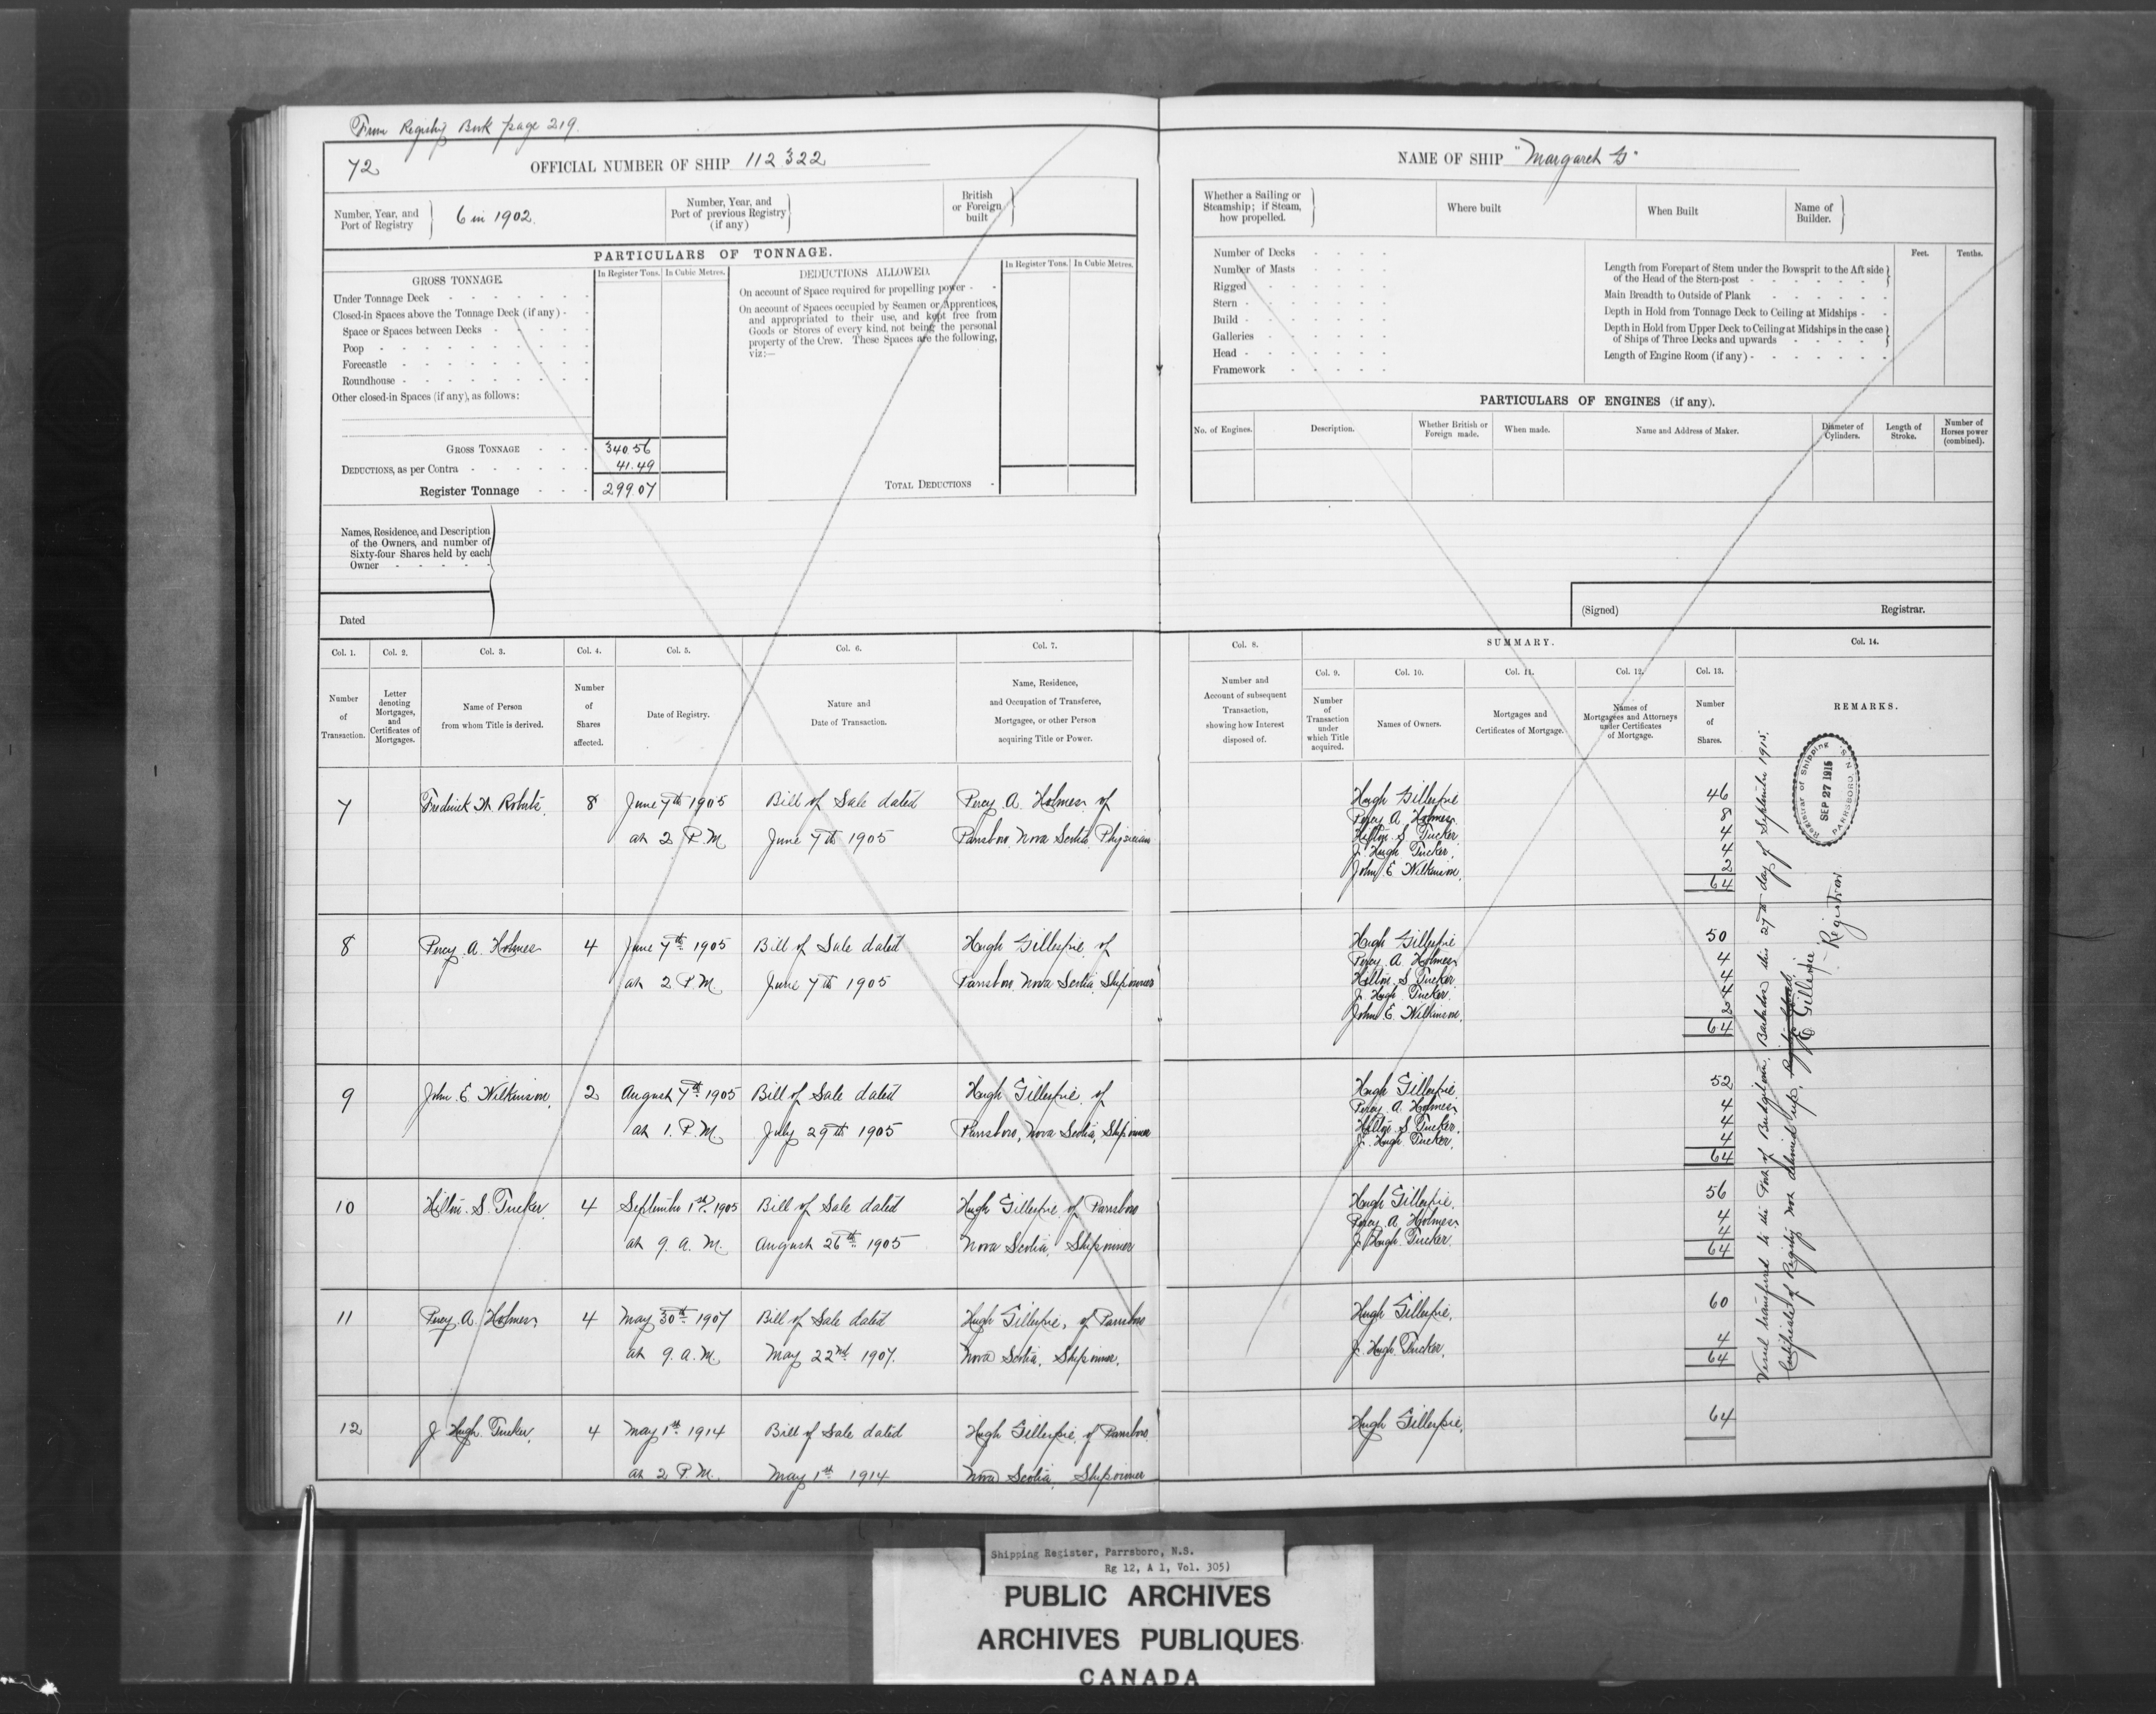 From Registry Book page 219.
72
OFFICIAL NUMBER OF SHIP 112322
Number, Year, and
Port of Registry
6 in 1902.
Number, Year, and
Port of previous Registry
(if any)
British
or Foreign
built
PARTICULARS OF TONNAGE.
GROSS TONNAGE.
In Register Tons.
In Cubic Metres.
DEDUCTIONS ALLOWED.
In Register Tons.
In Cubic Metres.
Under Tonnage Deck
Closed-in Spaces above the Tonnage Deck (if any)
Space or Spaces between Decks
Poop
Forecastle
Roundhouse
Other closed-in Spaces (if any), as follows:
On account of Space required for propelling power
On account of Spaces occupied by Seamen or Apprentices,
and appropriated to their use, and kept free from
Goods or Stores of every kind, not being the personal
property of the Crew. These Spaces are the following,
viz:—
GROSS TONNAGE 340.56
DEDUCTIONS, as per Contra 41.49
Register Tonnage 299.07
TOTAL DEDUCTIONS
Names, Residence, and Description
of the Owners, and number of
Sixty-four Shares held by each
Owner
Dated
NAME OF SHIP "Margaret G"
Whether a Sailing or
Steamship; if Steam,
how propelled.
Where built
When Built
Name of
Builder.
Number of Decks
Number of Masts
Rigged
Stern
Build
Galleries
Head
Framework
Feet.
Tenths.
Length from Forepart of Stem under the Bowsprit to the Aft side
of the Head of the Stern-post
Main Breadth to Outside of Plank
Depth in Hold from Tonnage Deck to Ceiling at Midships
Depth in Hold from Upper Deck to Ceiling at Midships in the case
of Ships of Three Decks and upwards
Length of Engine Room (if any)
PARTICULARS OF ENGINES (if any).
No. of Engines.
Description.
Whether British or
Foreign made.
When made.
Name and Address of Maker.
Diameter of
Cylinders.
Length of
Stroke.
Number of
Horses power
(combined).
(Signed)
Registrar.
Col. 1.
Col. 2.
Col. 3.
Col. 4.
Col. 5.
Col. 6.
Col. 7.
Number
of
Transaction.
Letter
denoting
Mortgages,
and
Certificates of
Mortgages.
Name of Person
from whom Title is derived.
Number
of
Shares
affected.
Date of Registry.
Nature and
Date of Transaction.
Name, Residence,
and Occupation of Transferee,
Mortgagee, or other Person
acquiring Title or Power.
Col. 8.
SUMMARY.
Col. 14.
Col. 9.
Col. 10.
Col. 11.
Col. 12.
Col. 13.
Number and
Account of subsequent
Transaction,
showing how Interest
disposed of.
Number
of
Transaction
under
which Title
acquired.
Names of Owners.
Mortgages and
Certificates of Mortgage.
Names of
Mortgagees and Attorneys
under Certificates
of Mortgage.
Number
of
Shares.
REMARKS.
7 Fredrick W. Roberts. 8 June 7th 1905 Bill of Sale dated Percy A. Holmes of
at 2 P.M. June 7th 1905 Parrsboro Nova Scotia, Physician
Hugh Gillespie 46
Percy A. Holmes 8
Hilton S. Tucker 4
J. Hugh Tucker. 4
John E. Wilkinson. 2
64
8 Percy A. Holmes 4 June 7th 1905 Bill of Sale dated Hugh Gillespie of
at 2 P.M. June 7th 1905 Parrsboro Nova Scotia, Shipowner
Hugh Gillespie 50
Percy A Holmes 4
Hilton S Tucker 4
J. Hugh Tucker. 4
John E. Wilkinson. 2
64
9 John E. Wilkinson. 2 August 7th 1905 Bill of Sale dated Hugh Gillespie of
at 1. P.M. July 29th 1905 Parrsboro, Nova Scotia, Shipowner
Hugh Gillespie. 52
Percy A. Holmes 4
Hilton S Tucker. 4
J. Hugh Tucker. 4
64
10 Hilton. S. Tucker. 4 September 1st 1905 Bill of Sale dated Hugh Gillespie of Parrsboro
at 9. a. M. August 26th 1905 Nova Scotia, Shipowner
Hugh Gillespie. 56
Percy A. Holmes 4
J. Hugh Tucker. 4
64
11 Percy. A. Holmes 4 May 30th 1907 Bill of Sale dated Hugh Gillespie, of Parrsboro
at 9. a. M. May 22nd 1907. Nova Scotia, Shipowner.
Hugh Gillespie. 60
J. Hugh Tucker. 4
64
12 J Hugh Tucker. 4 May 1st 1914 Bill of Sale dated Hugh Gillespie of Parrsboro
at 2 P.M. May 1st 1914 Nova Scotia, Shipowner
Hugh Gillespie. 64
Vessel transferred to the Port of Bridgetown, Barbados this 27th day of September 1915.
Certificate of Registry not delivered up.
Gillespie
Registrar
Registrar of Shipping
SEP 27 1915
PARRSBORO, N.S.
Shipping Register, Parrsboro, N.S.
Rg 12, A 1, Vol. 305)
PUBLIC ARCHIVES
ARCHIVES PUBLIQUES
CANADA